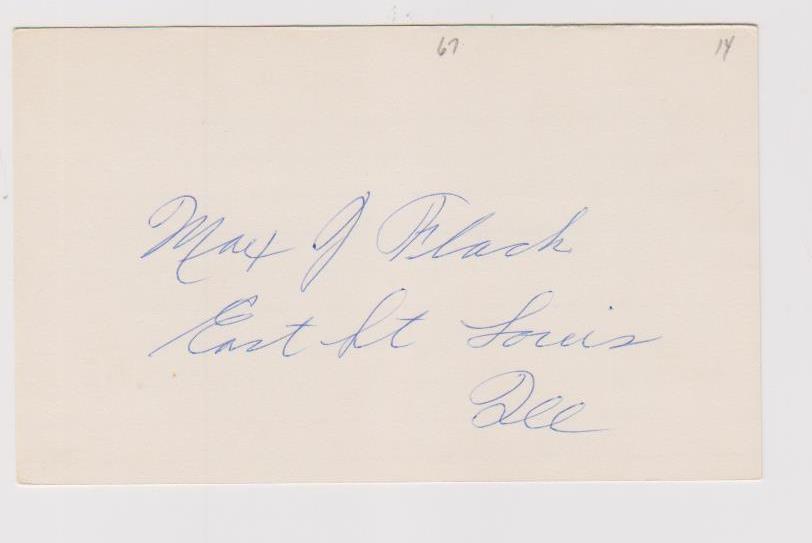 67 14
Max J Flack
East St Louis
Ill